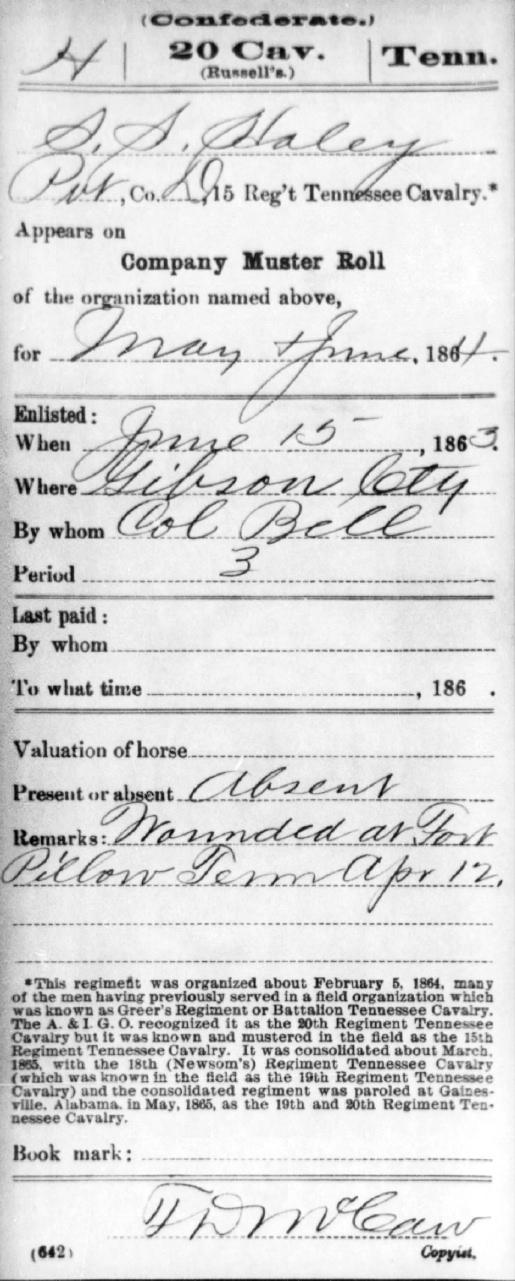 (Confederate.)
H | 20 Cav. | Tenn.
(Russell's.)
S. S. Haley
Pvt, Co. D, 15 Reg't Tennessee Cavalry.*
Appears on
Company Muster Roll
of the organization named above,
for May & June, 1864.
Enlisted:
When June 15, 1863.
Where Gibson Cty
By whom Col Bell
Period 3
Last paid:
By whom
To what time , 186 .
Valuation of horse
Present or absent Absent
Remarks: Wounded at Fort
Pillow Tenn Apr 12.
*This regiment was organized about February 5, 1864, many
of the men having previously served in a field organization which
was known as Greer's Regiment or Battalion Tennessee Cavalry.
The A. & I. G. O. recognized it as the 20th Regiment Tennessee
Cavalry but it was known and mustered in the field as the 15th
Regiment Tennessee Cavalry. It was consolidated about March,
1865, with the 18th (Newsom's) Regiment Tennessee Cavalry
(which was known in the field as the 19th Regiment Tennessee
Cavalry) and the consolidated regiment was paroled at Gaines-
ville, Alabama, in May, 1865, as the 19th and 20th Regiment Ten-
nessee Cavalry.
Book mark:
F D McCaw
(642) Copyist.